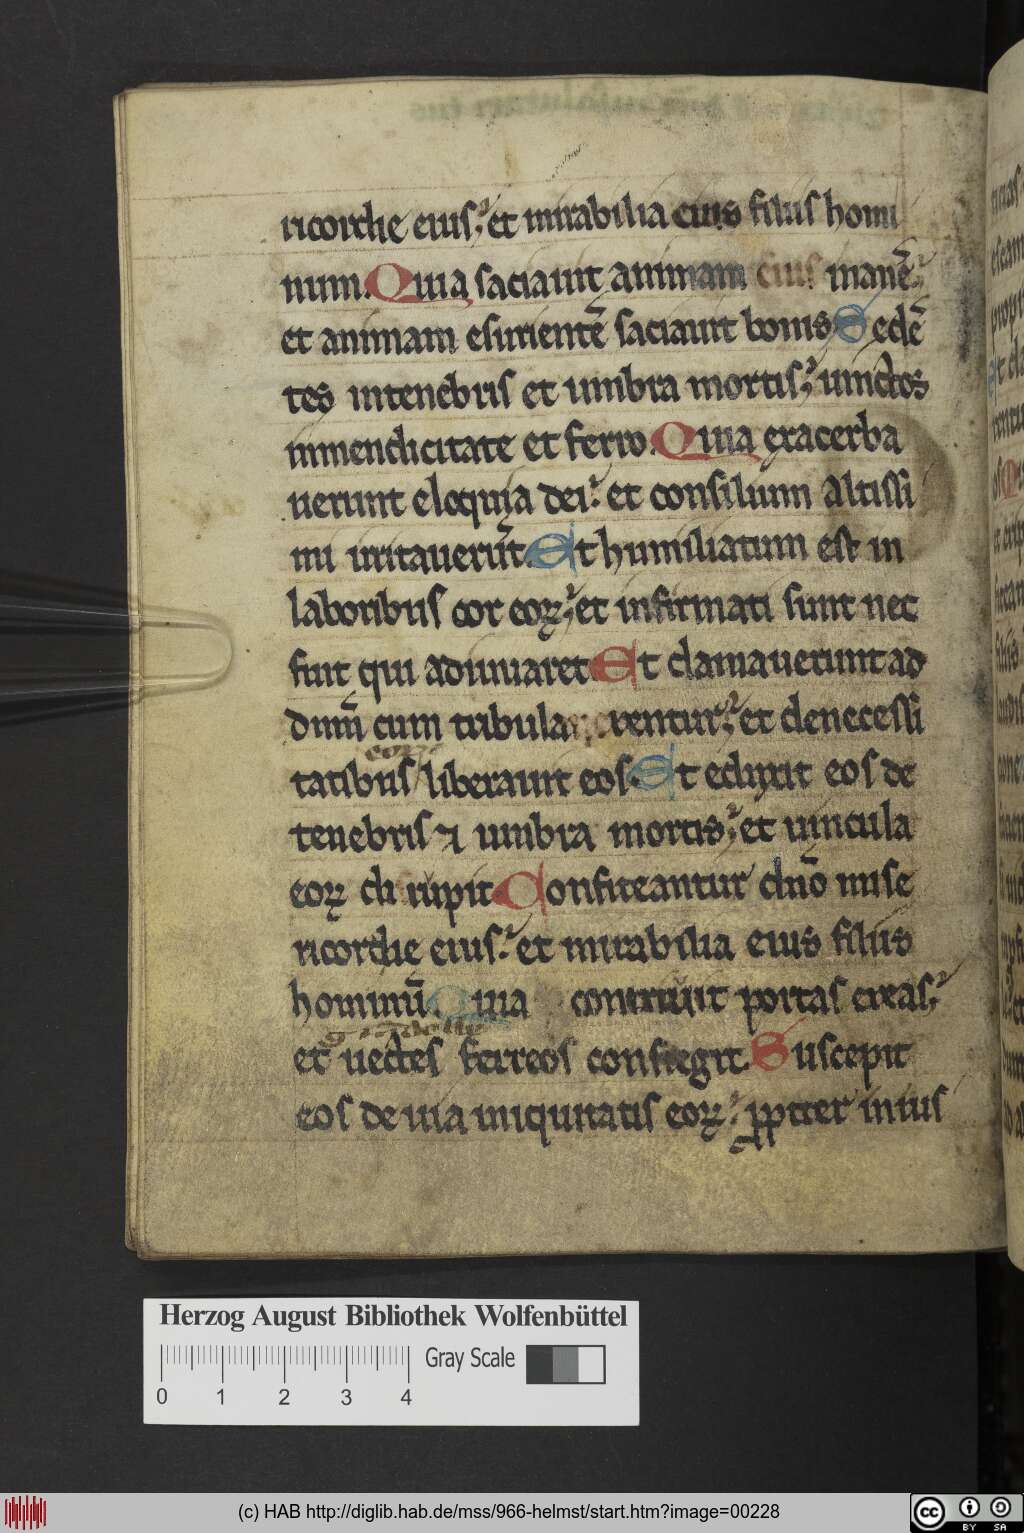 ricordie eius; et mirabilia eius filiis homi
num. Quia saciauit animam eius inanē;
et animam esurientē saciauit bonis Sedē
tes intenebris et umbra mortis; uinctos
inmendicitate et ferro. Quia exacerba
uerunt eloquia dei; et consilium altissi
mi irritauerūt. Et humiliatum est in
laboribus cor eoꝝ; et infirmati sunt nec
fuit qui adiuuaret Et clamauerunt ad
dn̄m cum tribularentur; et denecessi
eoꝝ
tatibus liberauit eos. Et eduxit eos de
tenebris ⁊ umbra mortis; et uincula
eoꝝ di rupit. Confiteantur dn̄o mise
ricordie eius; et mirabilia eius filiis
hominū. Quia contriuit portas ereas;
et uectes ferreos confregit. Suscepit
eos de uia iniquitatis eoꝝ; ꝓpter inius
Herzog August Bibliothek Wolfenbüttel
Gray Scale
0 1 2 3 4
(c) HAB http://diglib.hab.de/mss/966-helmst/start.htm?image=00228
cc BY SA